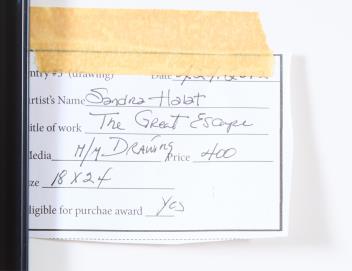 ntry #3 (drawing) Date
rtist's Name Sandra Halat
itle of work The Great Escape
Media M/M DRAWING Price 400
ze 18 X 24
ligible for purchae award Yes